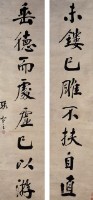 未鏤已雕不扶自直
垂德而處虛己以游